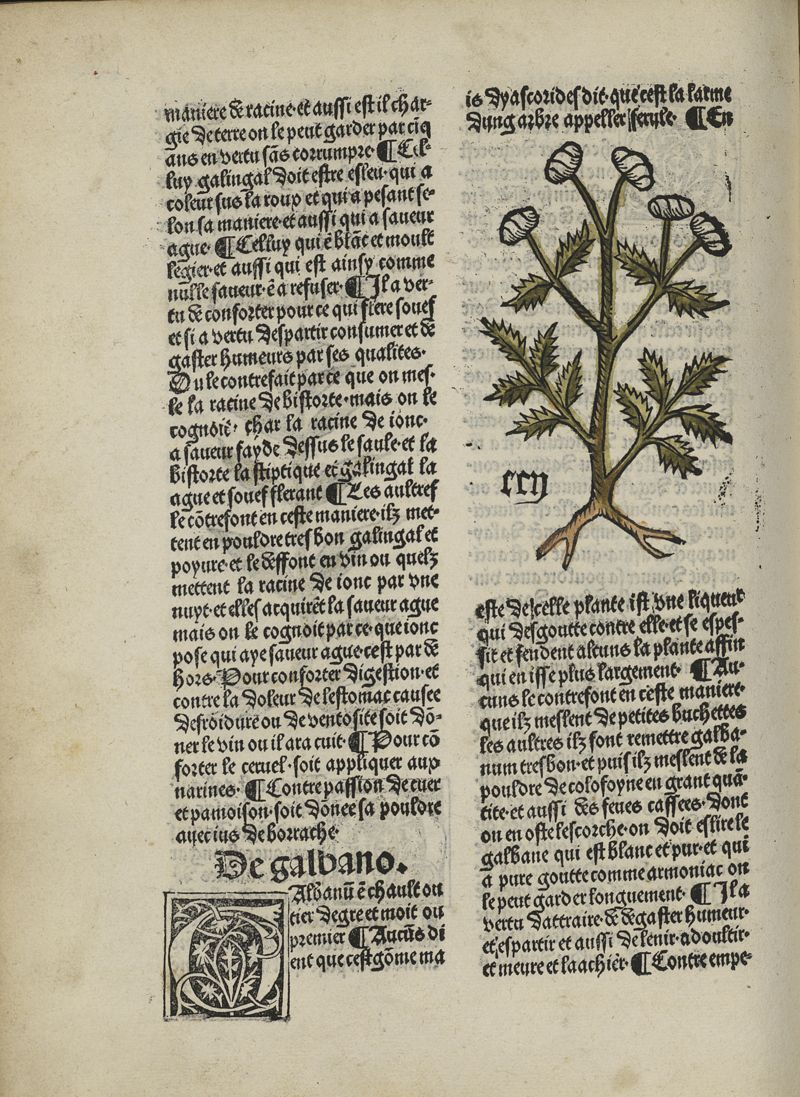 maniere de racine·et aussi est il char-
gie de terre on le peut garder par cīq
ans en vertu sās corrumpre·¶Cel-
luy galingal doit estre esleu·qui a
coleur sus la roup et qui a pesant se-
lon sa maniere·et aussi qui a saueur
ague·¶Celluy qui ē blāc et moult
legier·et aussi qui est ainsy comme
nulle saueur·ē a refuser·¶Il a ver-
tu de conforter pour ce qui fiere souef
et si a vertu despartir consumer et de
gaster humeurs par ses qualites·
Ou le contrefait par ce que on mes-
le la racine de bistorte·mais on le
cognoit̄· char la racine de ionc·
a saueur fayde dessus le saule·et la
bistorte la stiptique et galingal la
ague et souef flerant ¶Les aultres
le cōtrefont en ceste maniere·ilz met-
tent en pouldre tres bon galingal et
poyure·et le deffont en vin ou quelz
mettent la racine de ionc par vne
nuyt·et elles acquirēt la saueur ague
mais on le cognoit par ce·que ionc
pose qui aye saueur ague·cest par de
hors·Pour conforter digestion·et
contre la doleur de lestomac causee
desroidure ou de ventosite soit dō-
ner le vin ou il ara cuit·¶Pour cō
forter le ceruel·soit appliquer aux
narines·¶Contre passion de cuer
et pamoison·soit dōnee sa pouldre
auec ius de borrache·
De galbano.
Albanū ē chault ou
tier degre et moit ou
premier ¶Aucūs di
ent que cest gōme ma
is dyascorides dit·que cest la larme
dung arbre appeller ferule·¶En
ccv
este de icelle plante ist vne liqueur
qui desgoutte contre elle·et se espes-
sit et fendent alcuns la plante affin
qui en isse plus largement·¶Au-
cuns le contrefont en ceste maniere·
que ilz meslent de petites buchettes
les aultres ilz font remettre galba-
num tres bon·et puis ilz meslent de la
pouldre de colofoyne en grant quā-
tite·et aussi des feues cassees·dont
on en oste lescorche·on doit eslire le
galbane qui est blanc et pur·et qui
a pure goutte comme armoniac on
le peut garder longuement·¶Il a
vertu dattraire·et degaster humeur·
et espartir et aussi de lenir·adoultir·
et meure et laachiēr·¶Contre empe-